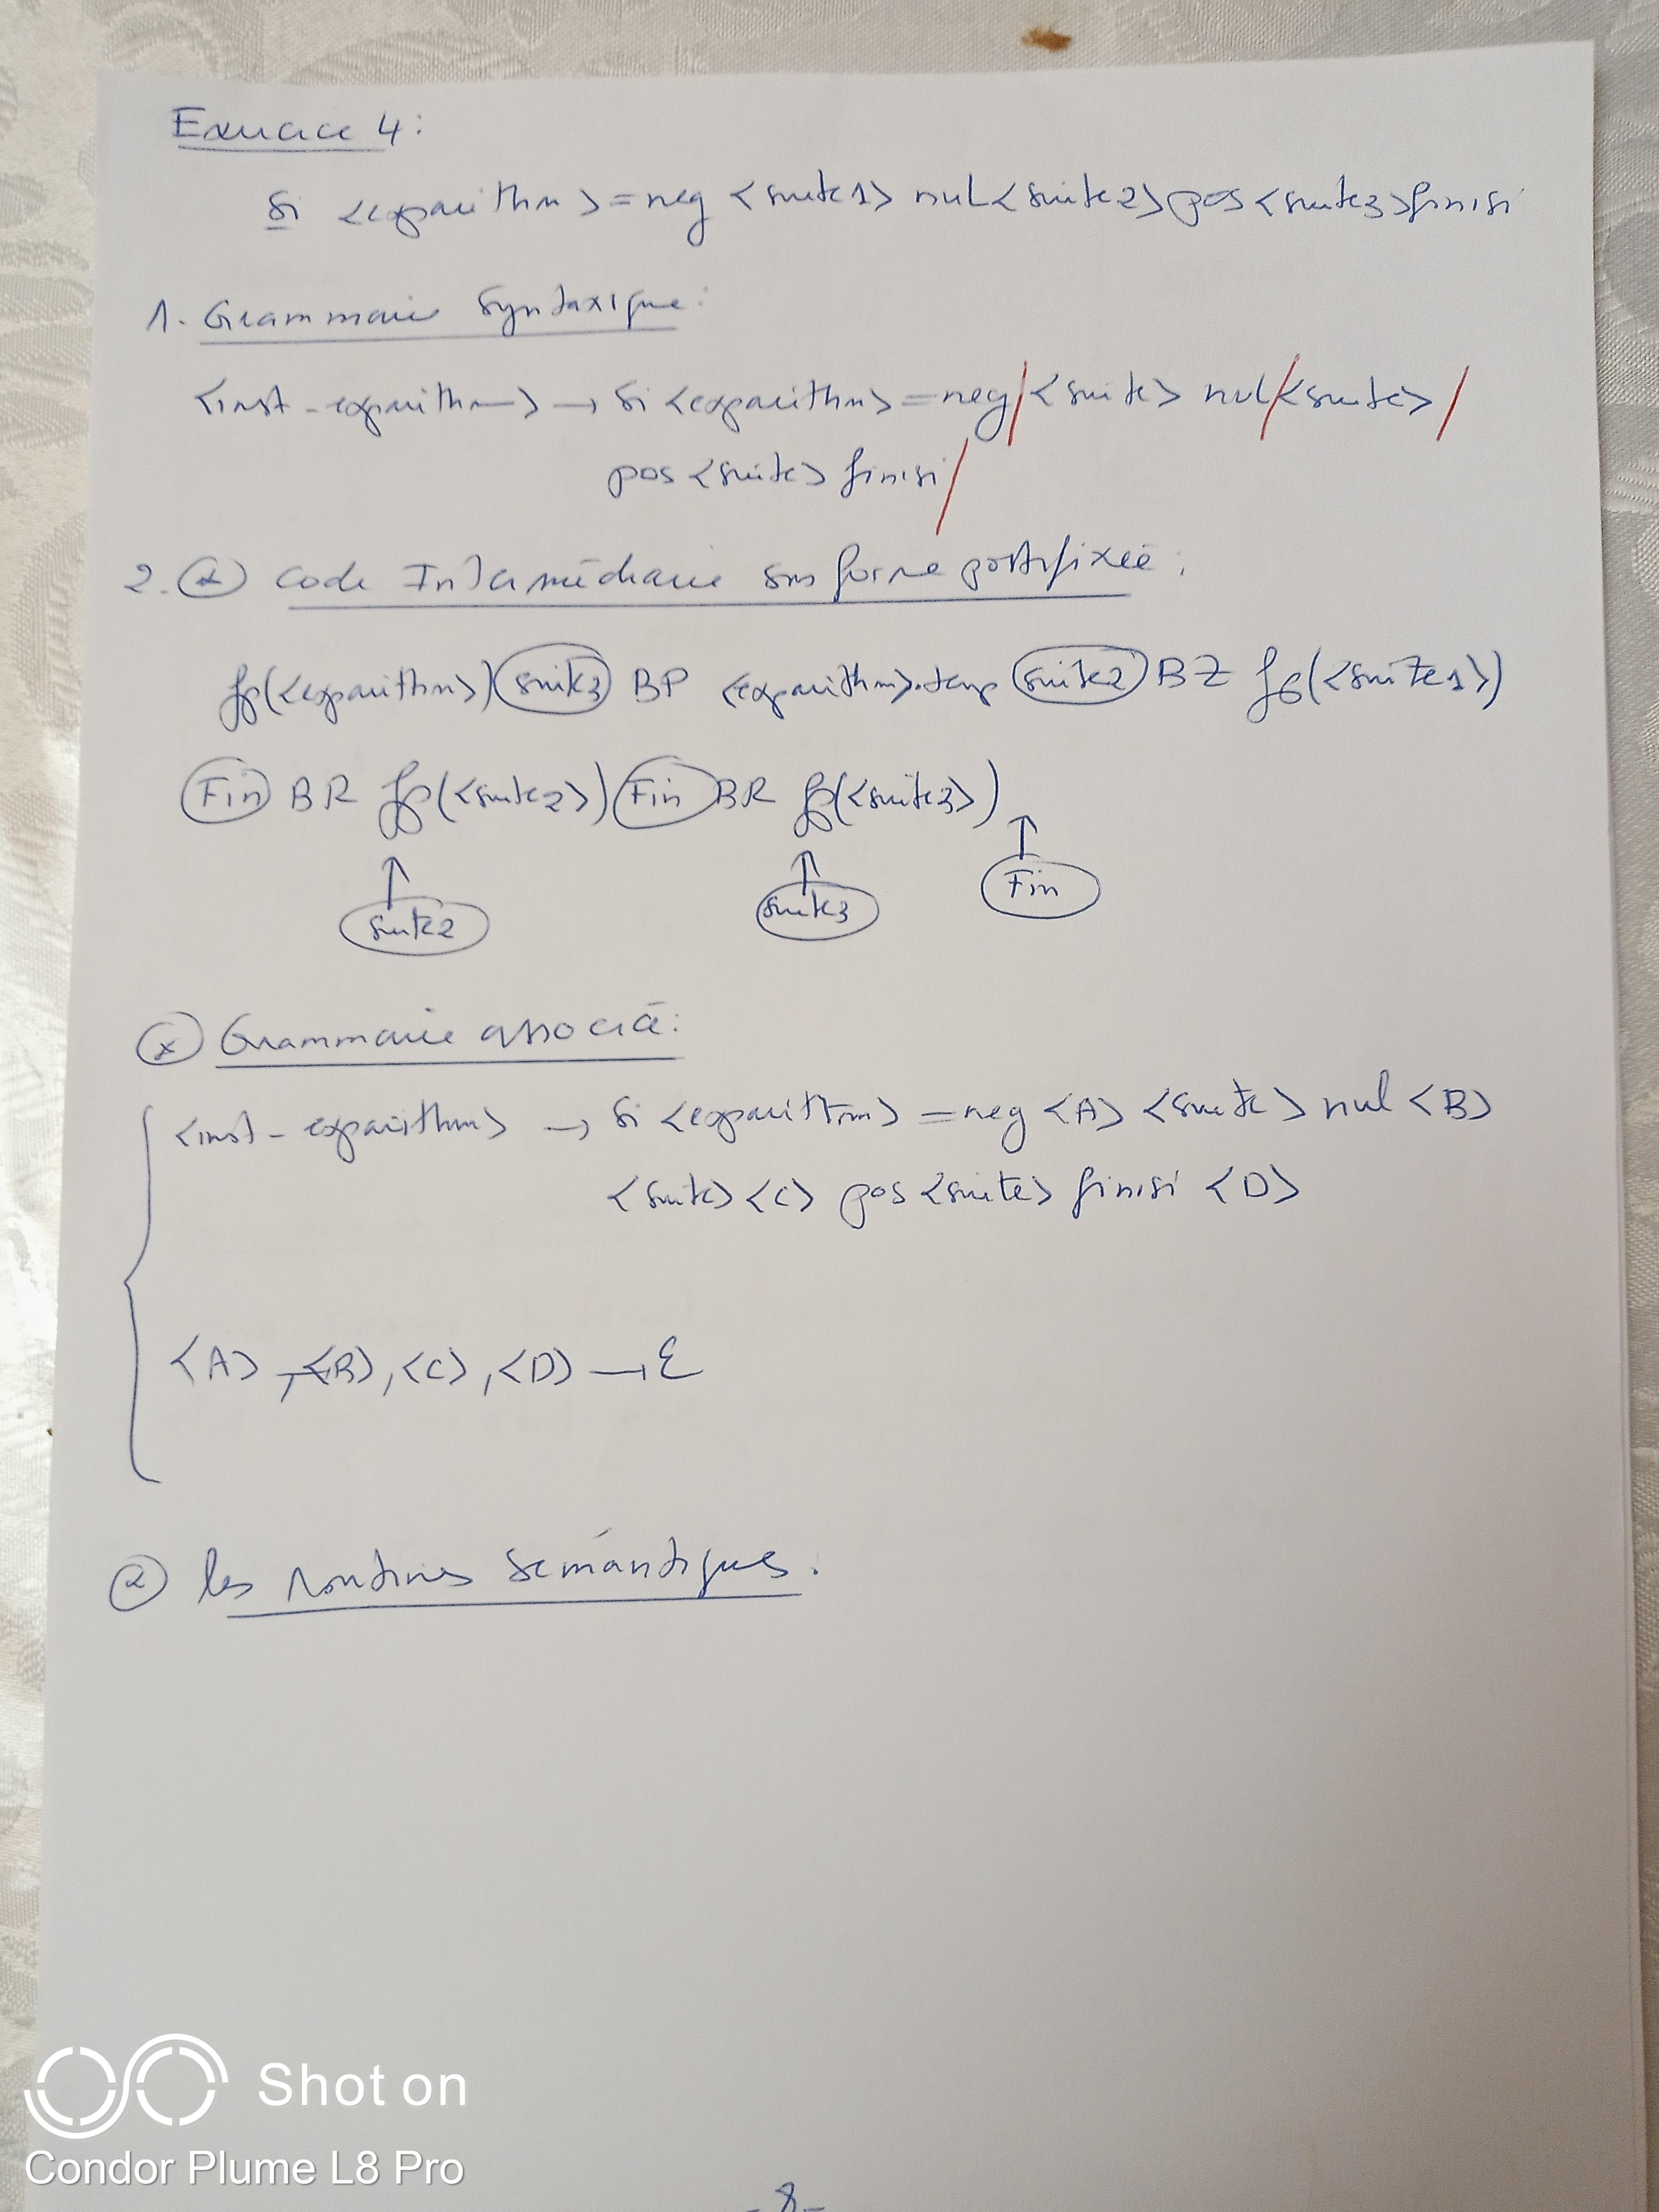 Exercice 4:
Si <exparithm> = neg <suite1> nul <suite2> pos <suite3> finisi
1. Grammaire syntaxique:
<inst-exparithm> → Si <exparithm> = neg / <suite> nul / <suite> /
pos <suite> finisi /
2. Code Intermédiaire sous forme postfixée:
fp(<exparithm>) suite3 BP <exparithm>.temp suite2 BZ fp(<suite1>)
Fin BR fp(<suite2>) Fin BR fp(<suite3>)
↑ ↑ ↑
suite2 suite3 Fin
Grammaire associée:
<inst-exparithm> → Si <exparithm> = neg <A> <suite> nul <B>
<suite> <C> pos <suite> finisi <D>
<A>, <B>, <C>, <D> → ε
les routines sémantiques:
Shot on
Condor Plume L8 Pro
- 8 -